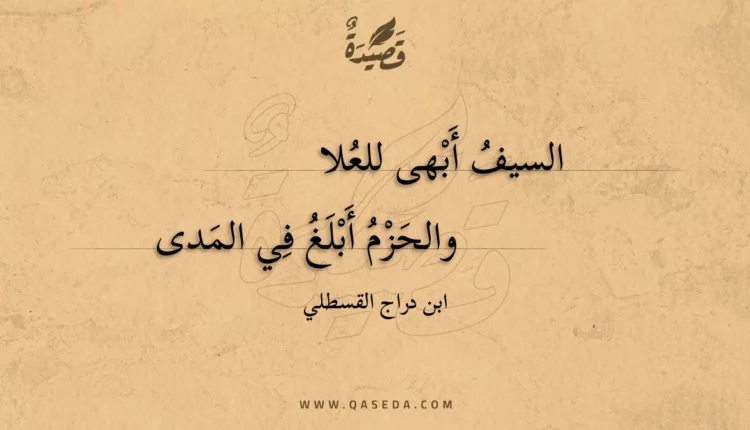 قَصِيْدَةٌ
السيفُ أَبْهى للعُلا
والحَزْمُ أَبْلَغُ فِي المَدى
ابن دراج القسطلي
WWW.QASEDA.COM